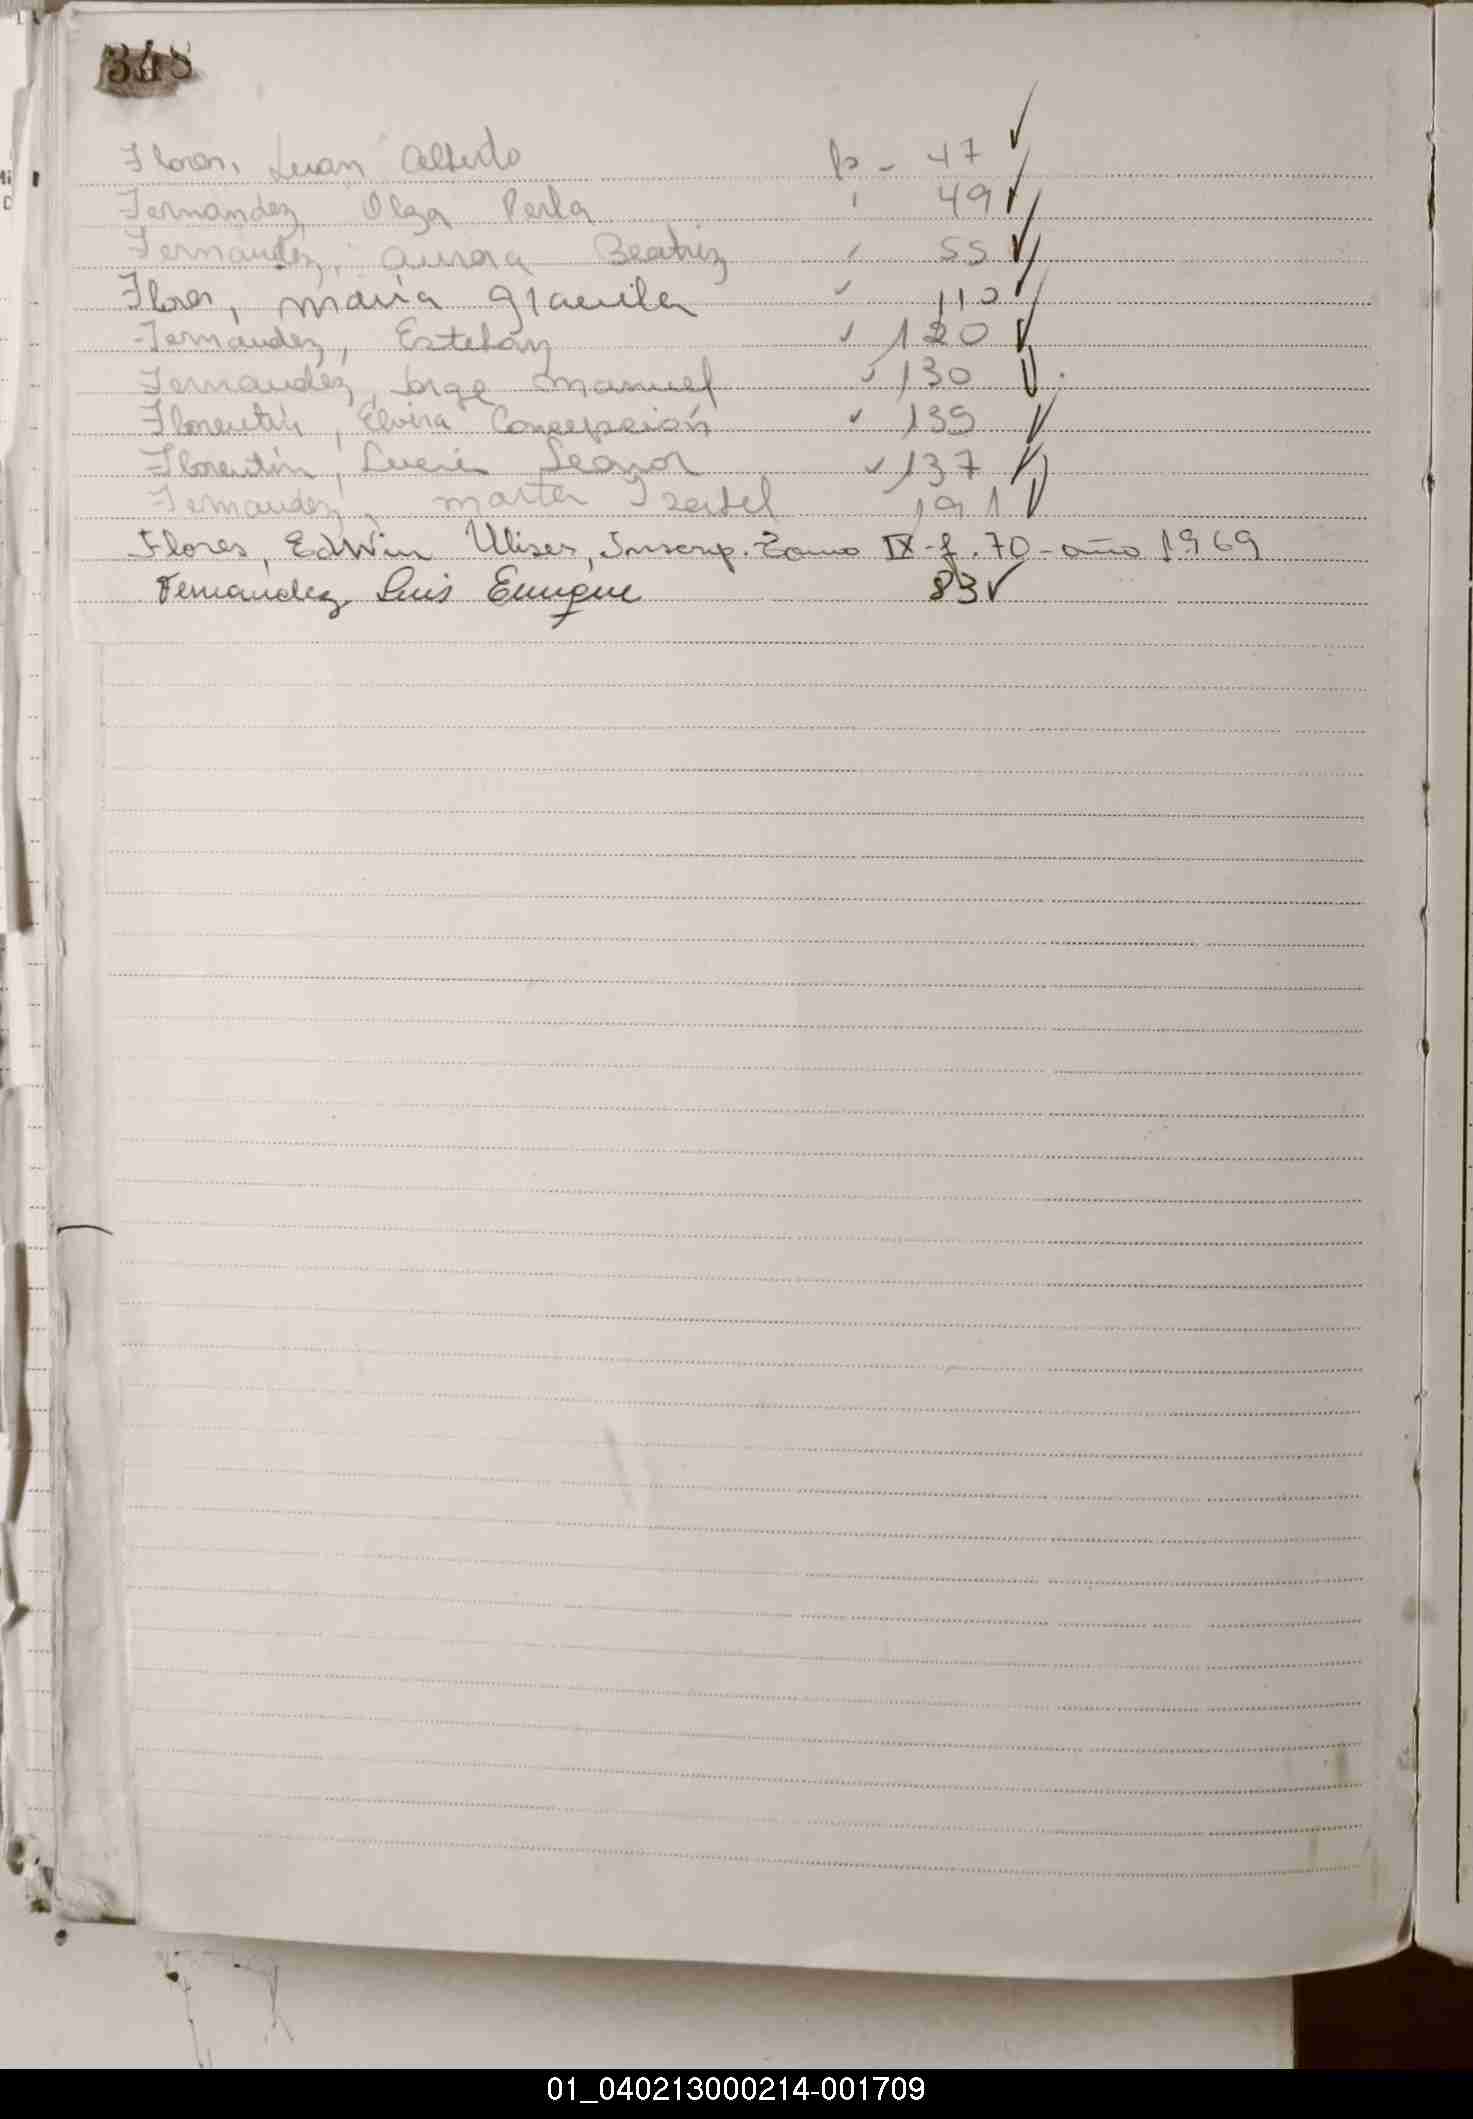 348
Flores, Juan Alberto p - 47 ✓
Fernández, Olga Perla " 49 ✓
Fernandez, Aurora Beatriz " 55 ✓
Flores, María Graciela " 110 ✓
Fernandez, Esteban " 120 ✓
Fernandez, Jorge Manuel " 130 ✓
Florentín, Elvira Concepción " 139 ✓
Florentín, Lucía Leonor " 137 ✓
Fernandez, Marta Isabel 191 ✓
Flores, Edwin Ulises, Inscrip. Tomo IX - f. 70 - año 1969
Fernandez, Luis Enrique 83 ✓
01_040213000214-001709